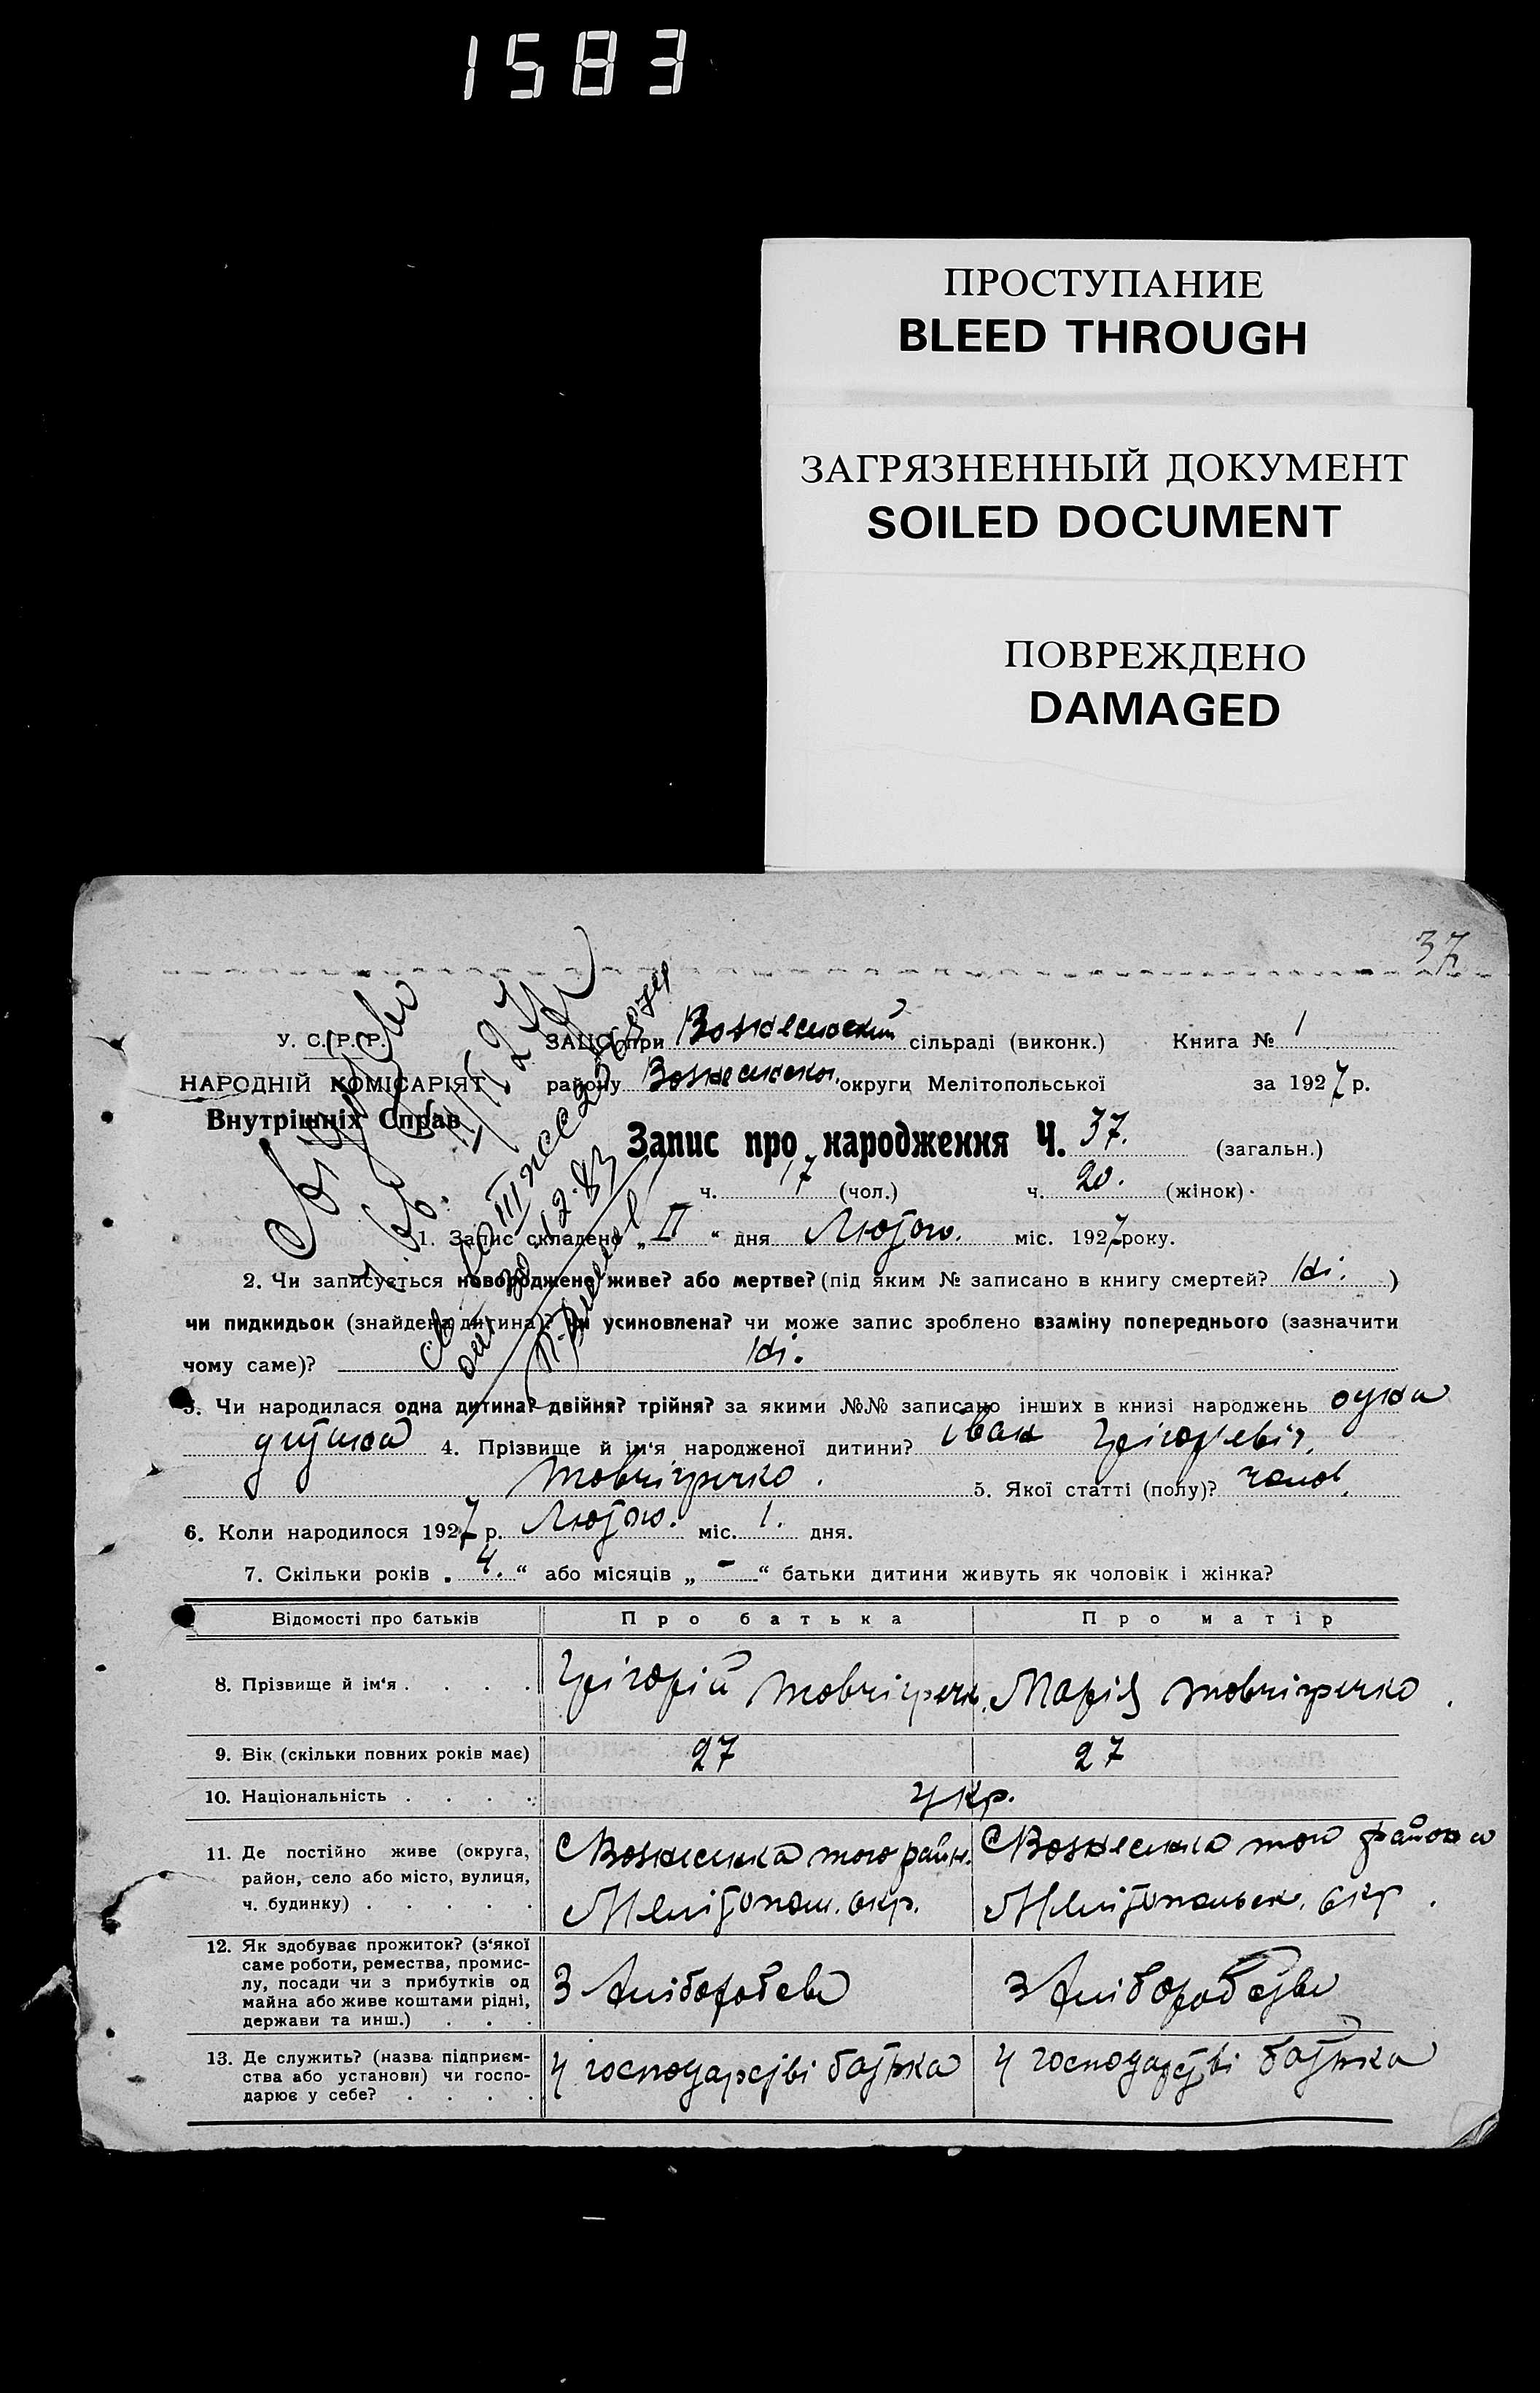 1583
ПРОСТУПАНИЕ
BLEED THROUGH
ЗАГРЯЗНЕННЫЙ ДОКУМЕНТ
SOILED DOCUMENT
ПОВРЕЖДЕНО
DAMAGED
37
У. С. Р. Р. ЗАЦС при Вознесенский сільраді (виконк.) Книга № 1
НАРОДНІЙ КОМІСАРІЯТ району Вознесенськ. округи Мелітопольської за 1927 р.
Внутрішніх Справ
Запис про народження Ч. 37. (загальн.)
ч. 17 (чол.) ч. 20. (жінок)
1. Запис складено „ II “ дня Лютого. міс. 1927 року.
2. Чи записується новороджене живе? або мертве? (під яким № записано в книгу смертей? Ні. )
чи пидкидьок (знайдена дитина)? чи усиновлена? чи може запис зроблено взаміну попереднього (зазначити
чому саме)? Ні.
3. Чи народилася одна дитина? двійня? трійня? за якими №№ записано інших в книзі народжень одна
дитина 4. Прізвище й ім‘я народженої дитини? Іван Грігорьевіч.
Товчігречко. 5. Якої статті (полу)? чолов.
6. Коли народилося 1927 р. Лютого. міс. 1. дня.
7. Скільки років „ 4. “ або місяців „ - “ батьки дитини живуть як чоловік і жінка?
Відомості про батьків Про батька Про матір
8. Прізвище й ім‘я . . . . Грігорій Товчігречк. Марія Товчігречко.
9. Вік (скільки повних років має) 27 27
10. Національність . . . . Укр.
11. Де постійно живе (округа, С Вознесенка того райн. С Вознесенка того района
район, село або місто, вулиця,
ч. будинку) . . . . . Мелітопол. окр. Мелітопольск. окр.
12. Як здобуває прожиток? (з‘якої
саме роботи, ремества, промис-
лу, посади чи з прибутків од З хліборобства З хліборобства
майна або живе коштами рідні,
держави та инш.) . . .
13. Де служить? (назва підприєм- У господарстві батька У господарстві батька
ства або установи) чи госпо-
дарює у себе? . . . .